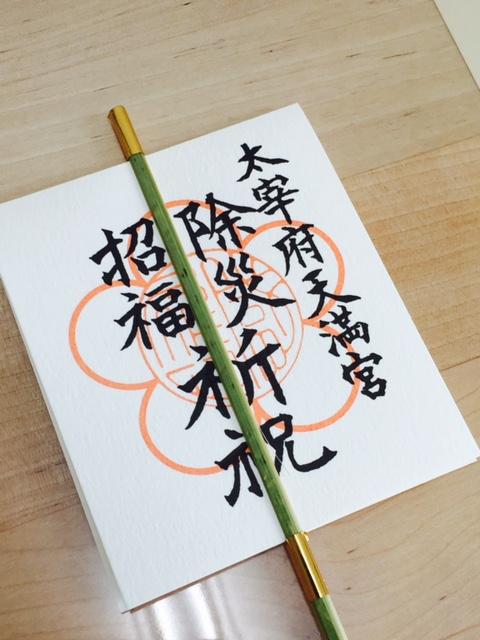 太宰府天満宮
除災
招福
祈祝